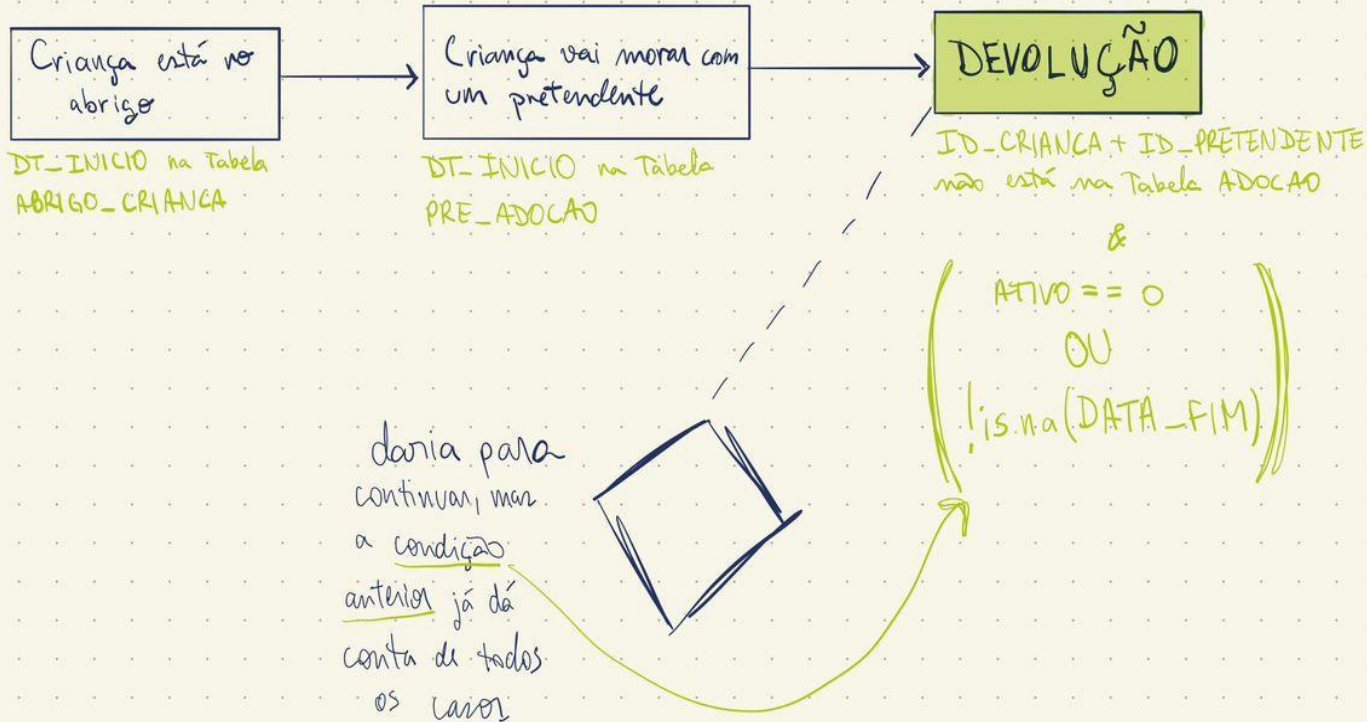 Criança está no
abrigo
DT_INICIO na Tabela
ABRIGO_CRIANCA
Criança vai morar com
um pretendente
DT_INICIO na Tabela
PRE_ADOCAO
DEVOLUÇÃO
ID_CRIANCA + ID_PRETENDENTE
não está na Tabela ADOCAO
&
ATIVO == 0
OU
!is.na(DATA_FIM)
daria para
continuar, mas
a condição
anterior já dá
conta de todos
os casos